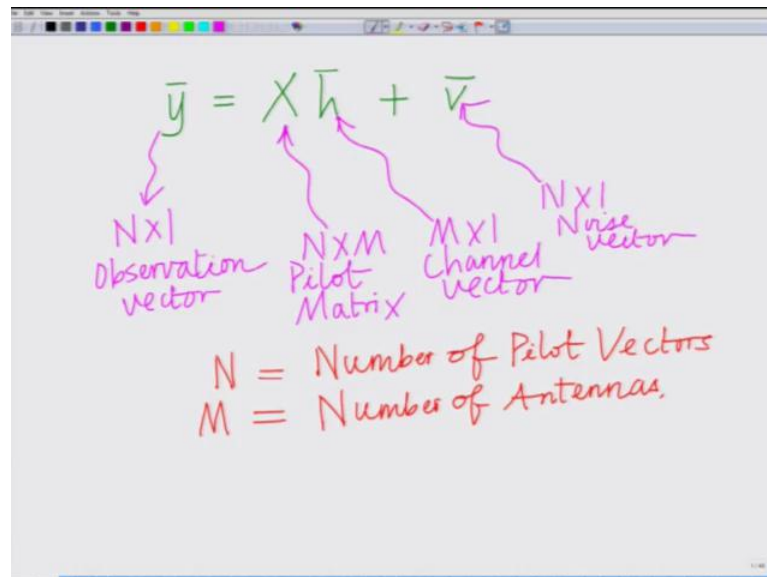 ȳ = X h̄ + v̄
NX1
Observation
vector
NXM
Pilot
Matrix
MX1
Channel
vector
NX1
Noise
vector
N = Number of Pilot Vectors
M = Number of Antennas.